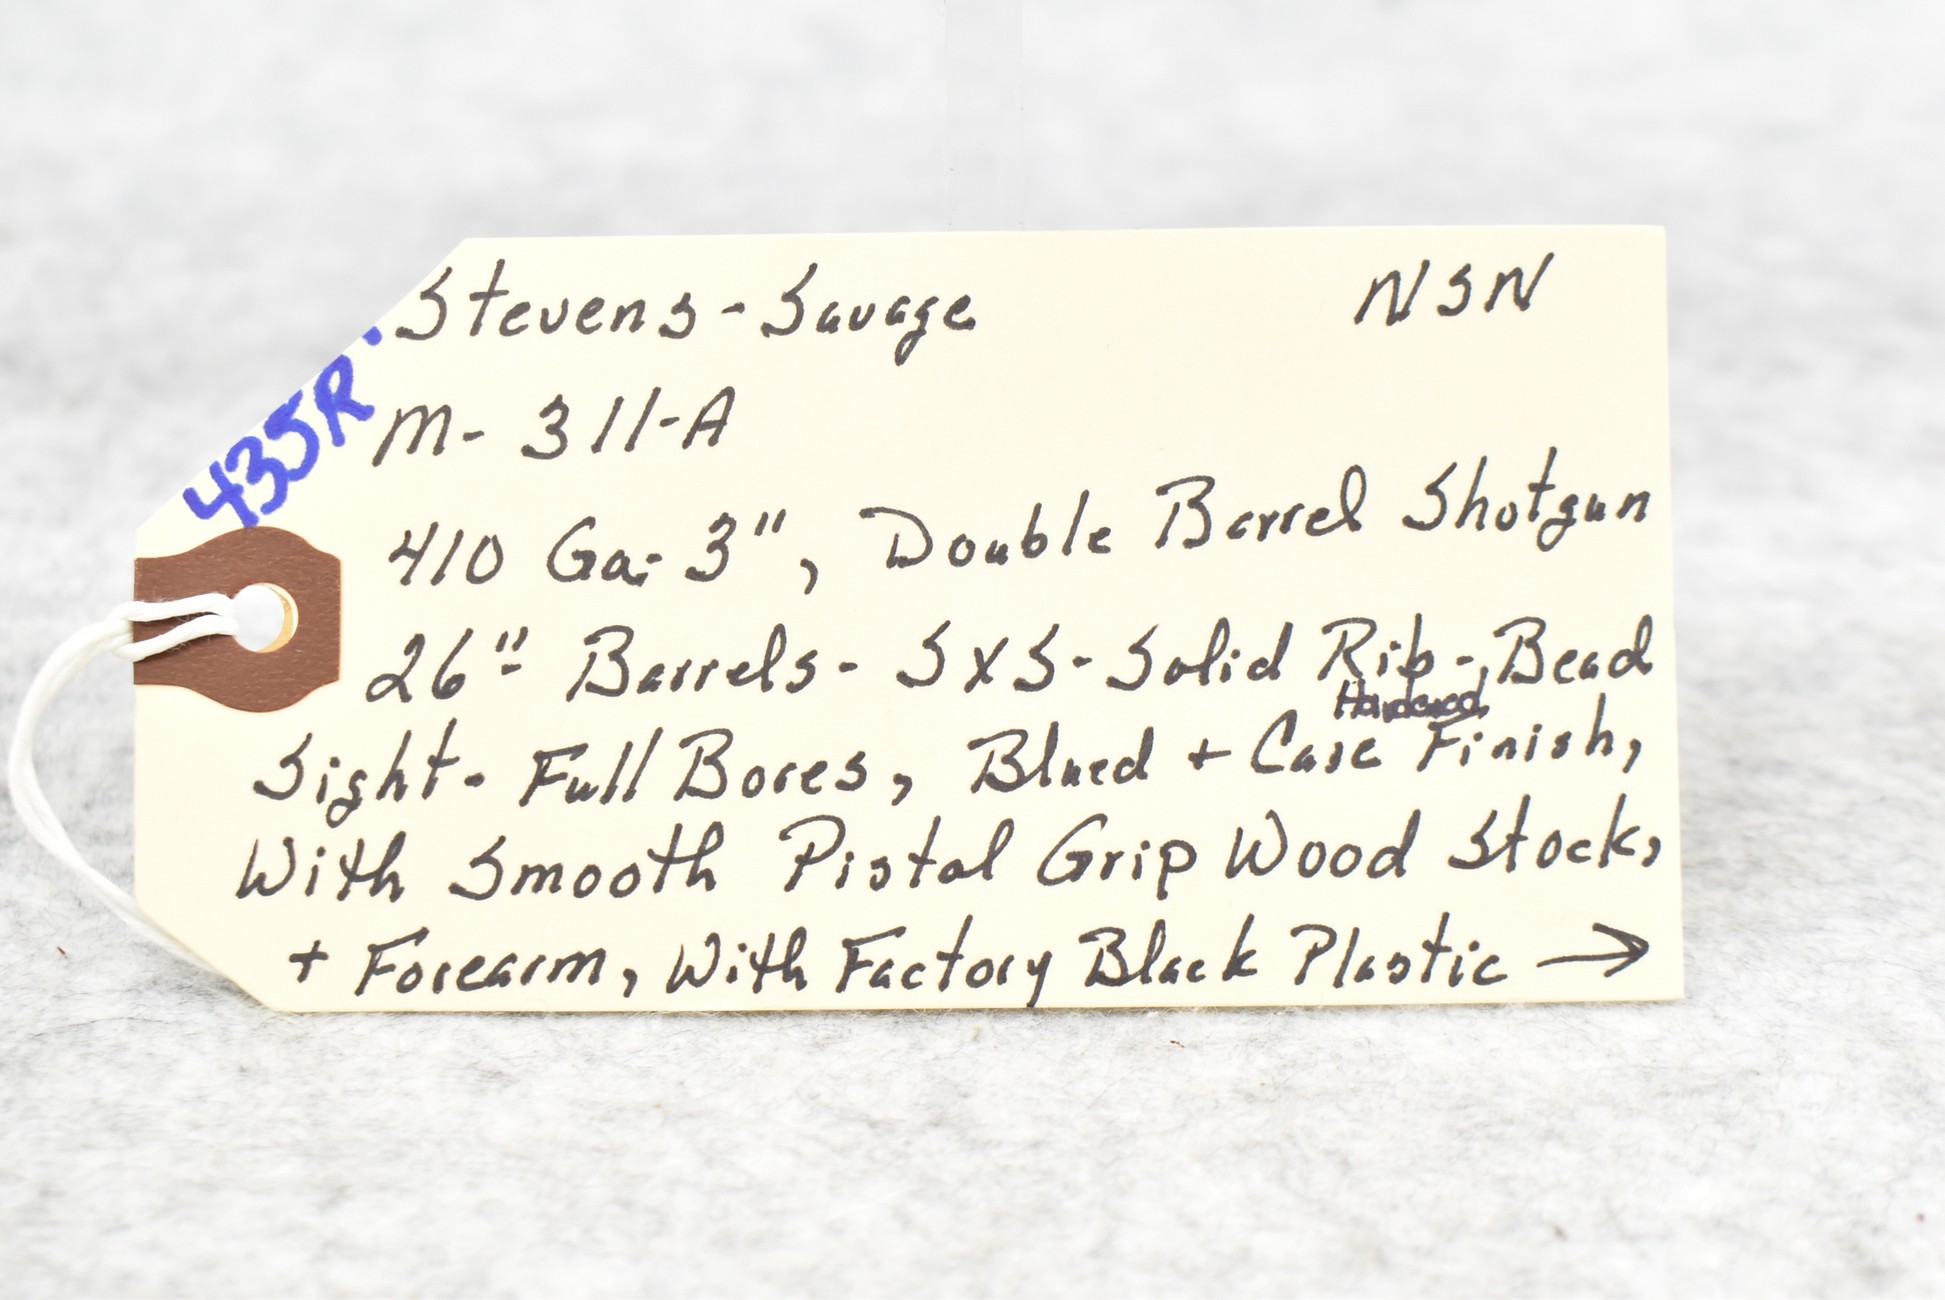 Stevens-Savage NSN
435R.
M-311-A
410 Ga. 3", Double Barrel Shotgun
26"- Barrels- SXS-Solid Rib-Bead
Hardened
Sight- Full Bores, Blued + Case Finish,
With Smooth Pistol Grip Wood Stock,
+ Forearm, With Factory Black Plastic →